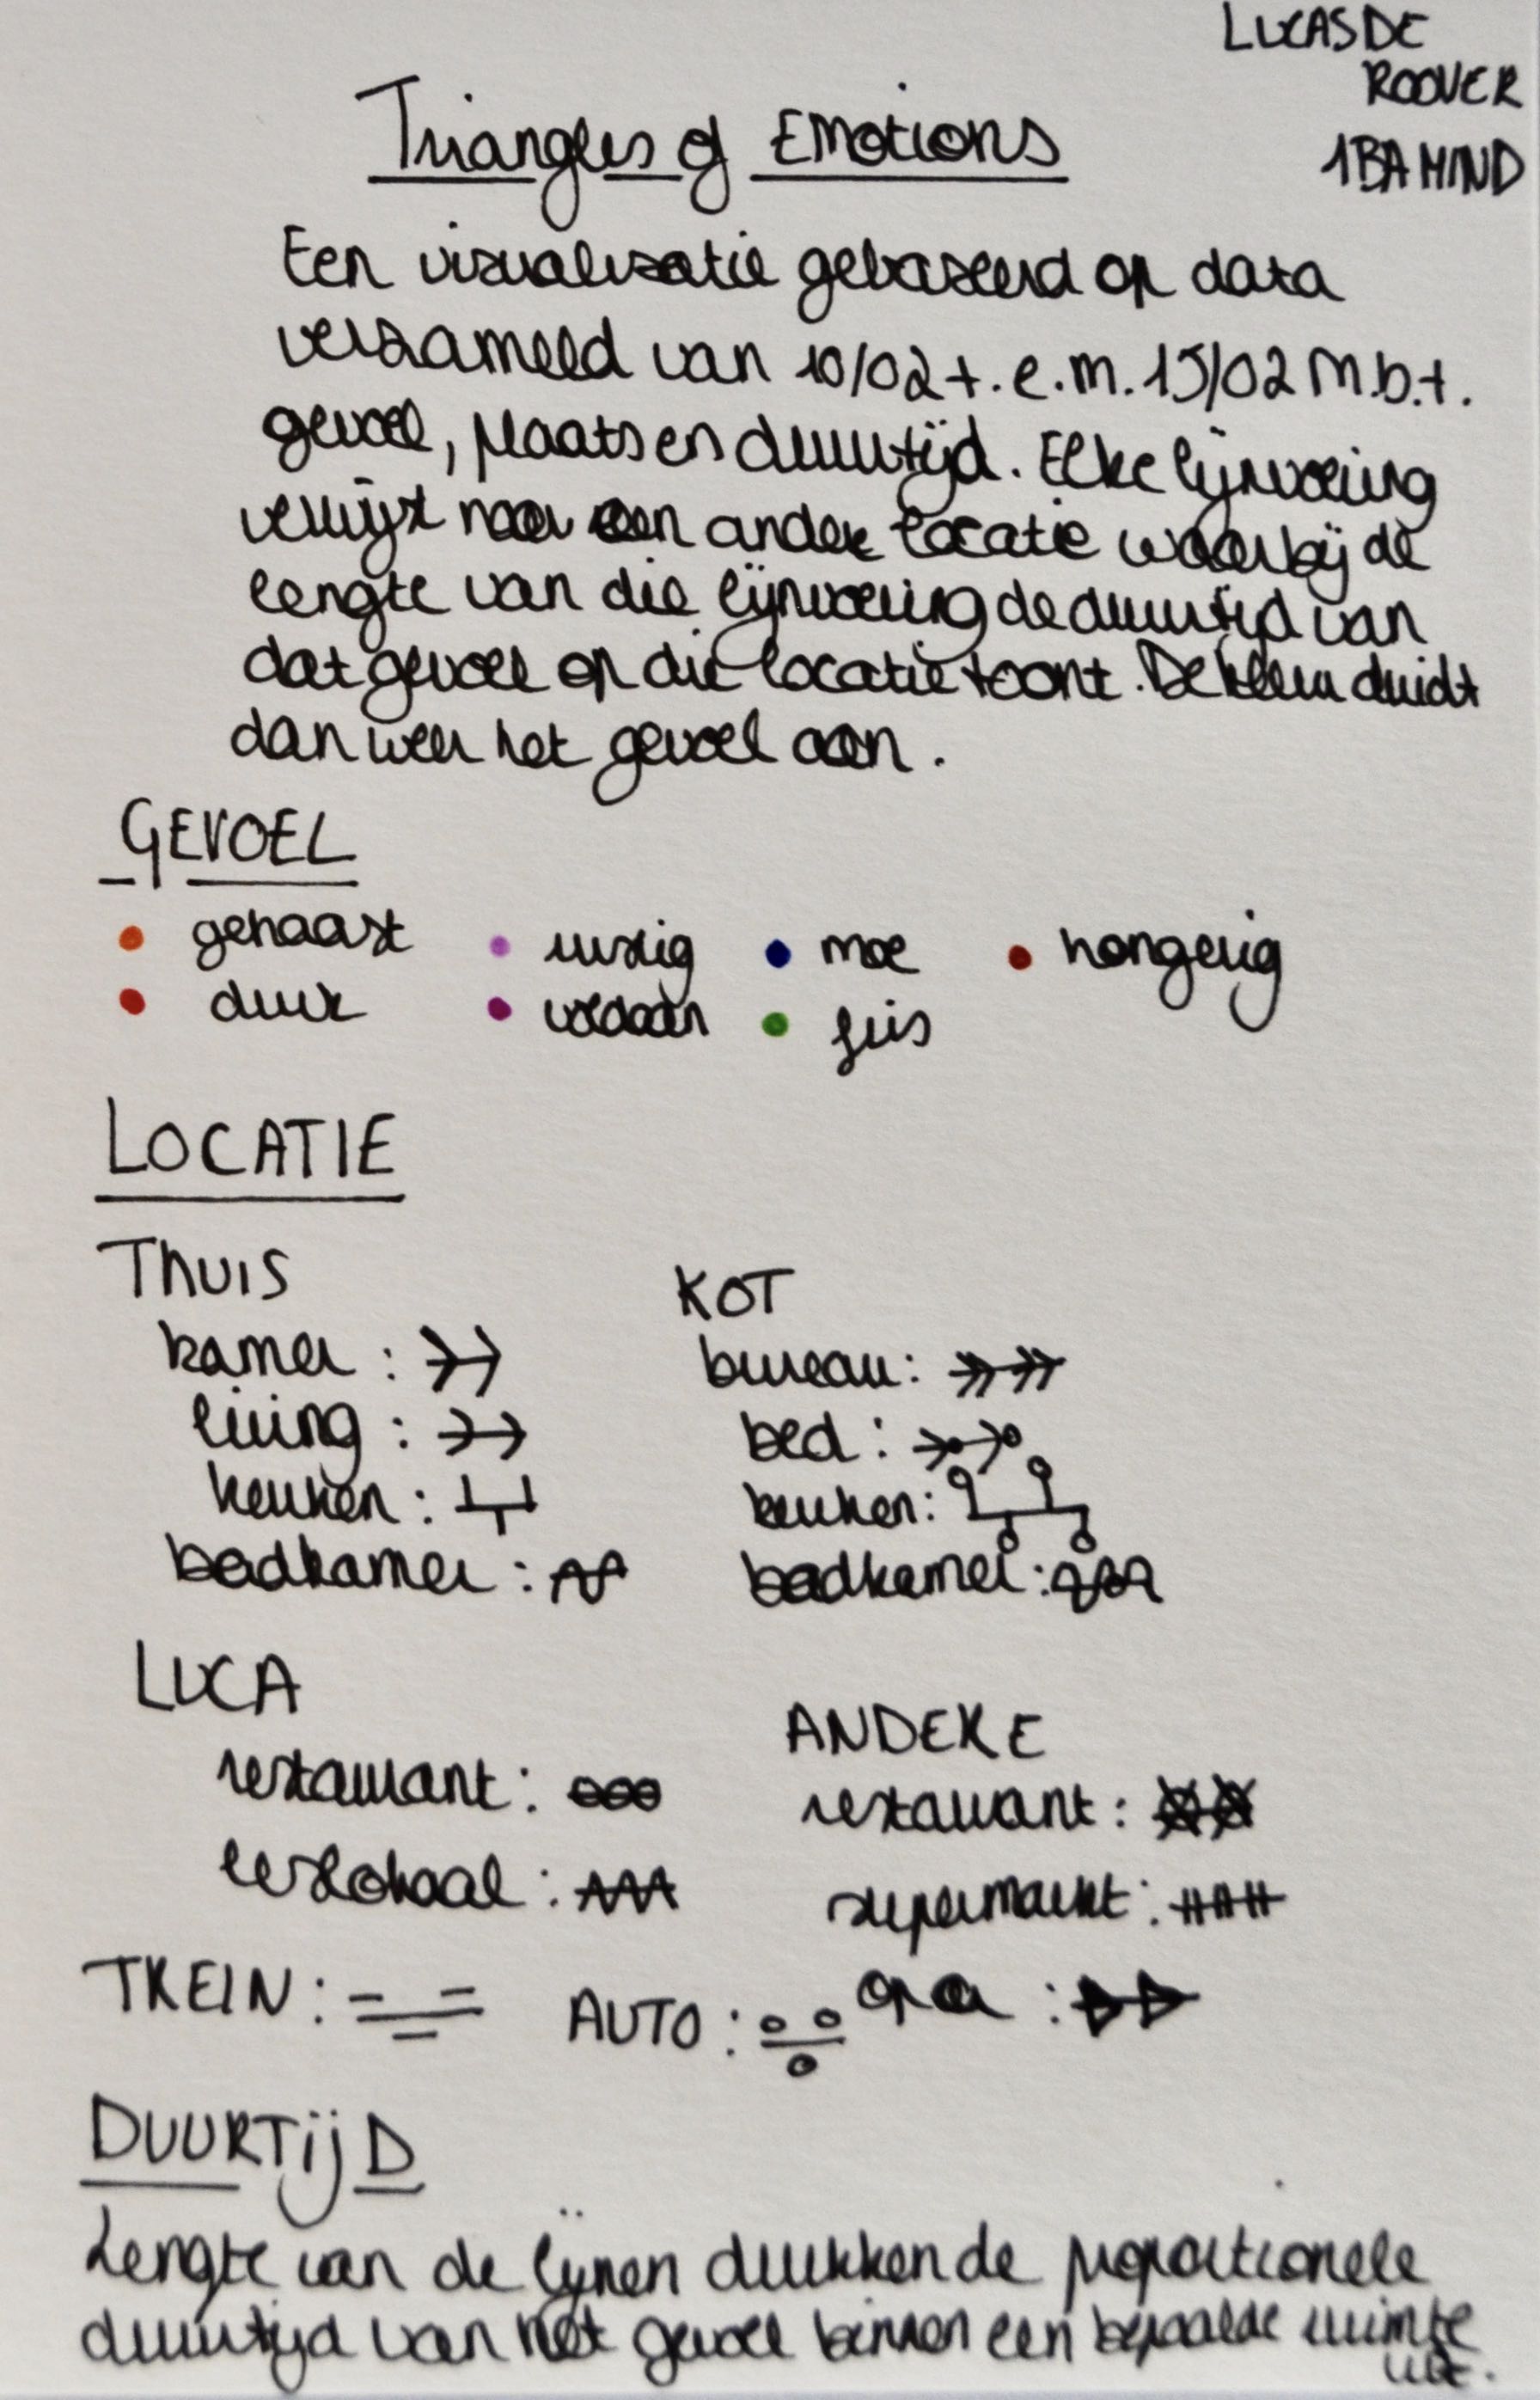 LUCAS DE
ROOVER
1BA MIND
Triangles of Emotions
Een visualisatie gebaseerd op data
verzameld van 10/02 t.e.m. 15/02 m.b.t.
gevoel, plaats en duurtijd. Elke lijnvoering
verwijst naar een andere locatie waarbij de
lengte van die lijnvoering de duurtijd van
dat gevoel op die locatie toont. De kleur duidt
dan weer het gevoel aan.
GEVOEL
gehaast
rustig
moe
hongerig
druk
voldaan
fris
LOCATIE
THUIS
kamer :
living :
keuken :
badkamer :
KOT
bureau :
bed :
keuken :
badkamer :
LUCA
restaurant :
leslokaal :
ANDERE
restaurant :
supermarkt :
TREIN :
AUTO :
opa :
DUURTijD
Lengte van de lijnen drukken de proportionele
duurtijd van het gevoel binnen een bepaalde ruimte
uit.